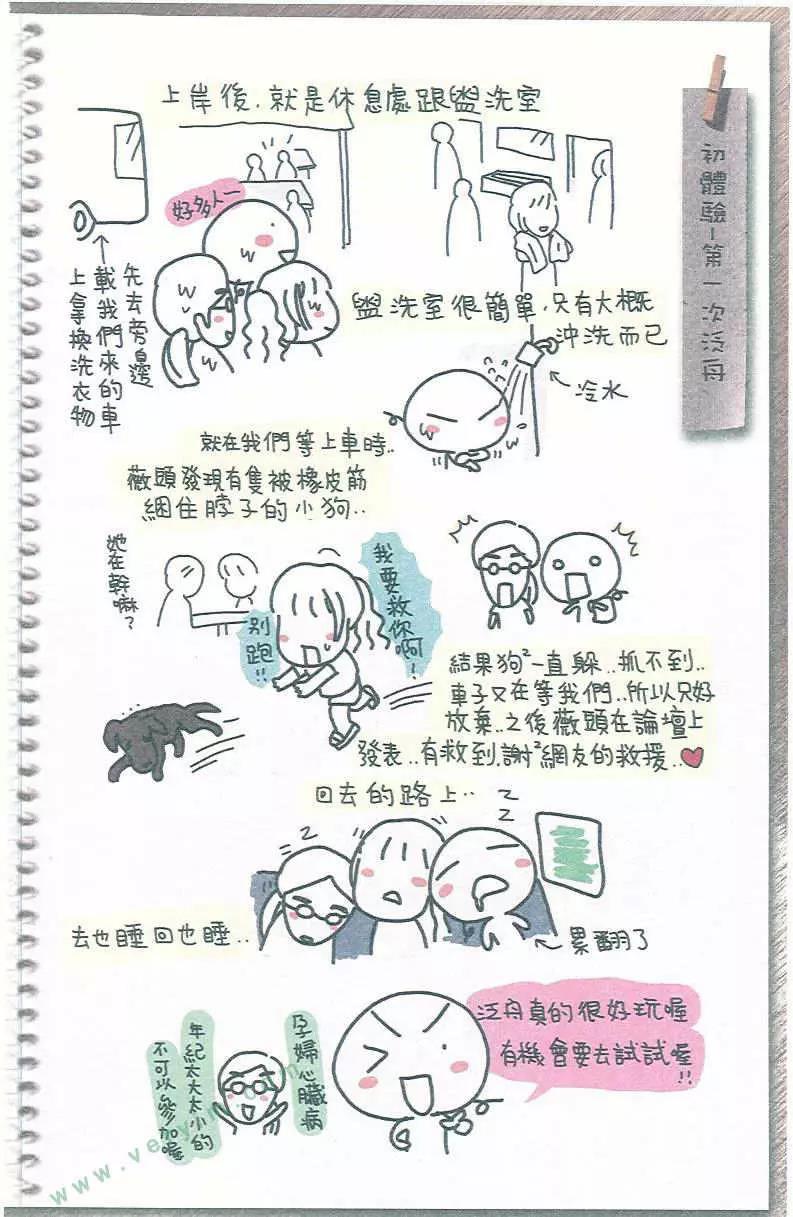 初體驗-第一次泛舟
上岸後.就是休息處跟盥洗室
好多人-
先去旁邊
載我們來的車
上拿換洗衣物
盥洗室很簡單.只有大概
沖洗而已
冷水
就在我們等上車時..
薇頭發現有隻被橡皮筋
綑住脖子的小狗..
她在幹嘛?
我要救你啊!
別跑!!
結果狗²一直躲..抓不到..
車子又在等我們..所以只好
放棄..之後薇頭在論壇上
發表..有救到.謝²網友的救援..
回去的路上..
z
z
z
去也睡回也睡..
累翻了
泛舟真的很好玩喔
有機會要去試試喔!!
孕婦心臟病
年紀太大太小的
不可以參加喔